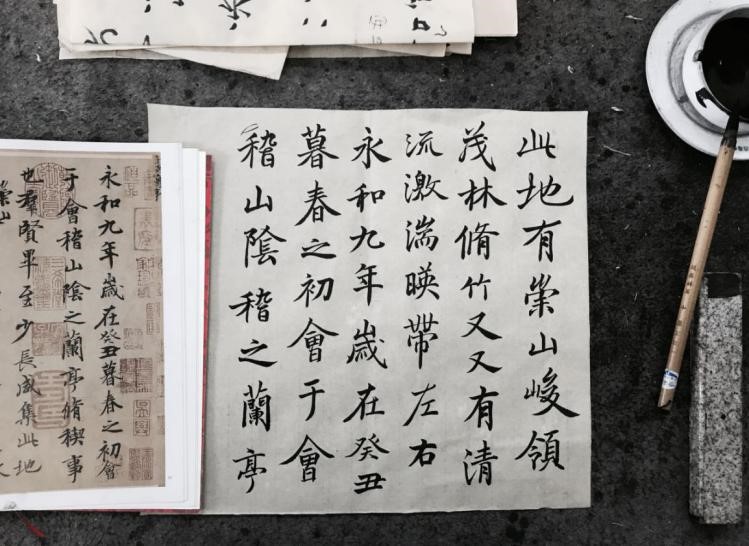 此地有崇山峻領
茂林脩竹又又有清
流激湍暎帶左右
永和九年歲在癸丑
暮春之初會于會
稽山陰稽之蘭亭
永和九年歲在癸丑暮春之初會
于會稽山陰之蘭亭脩稧事
也羣賢畢至少長咸集此地
崇山